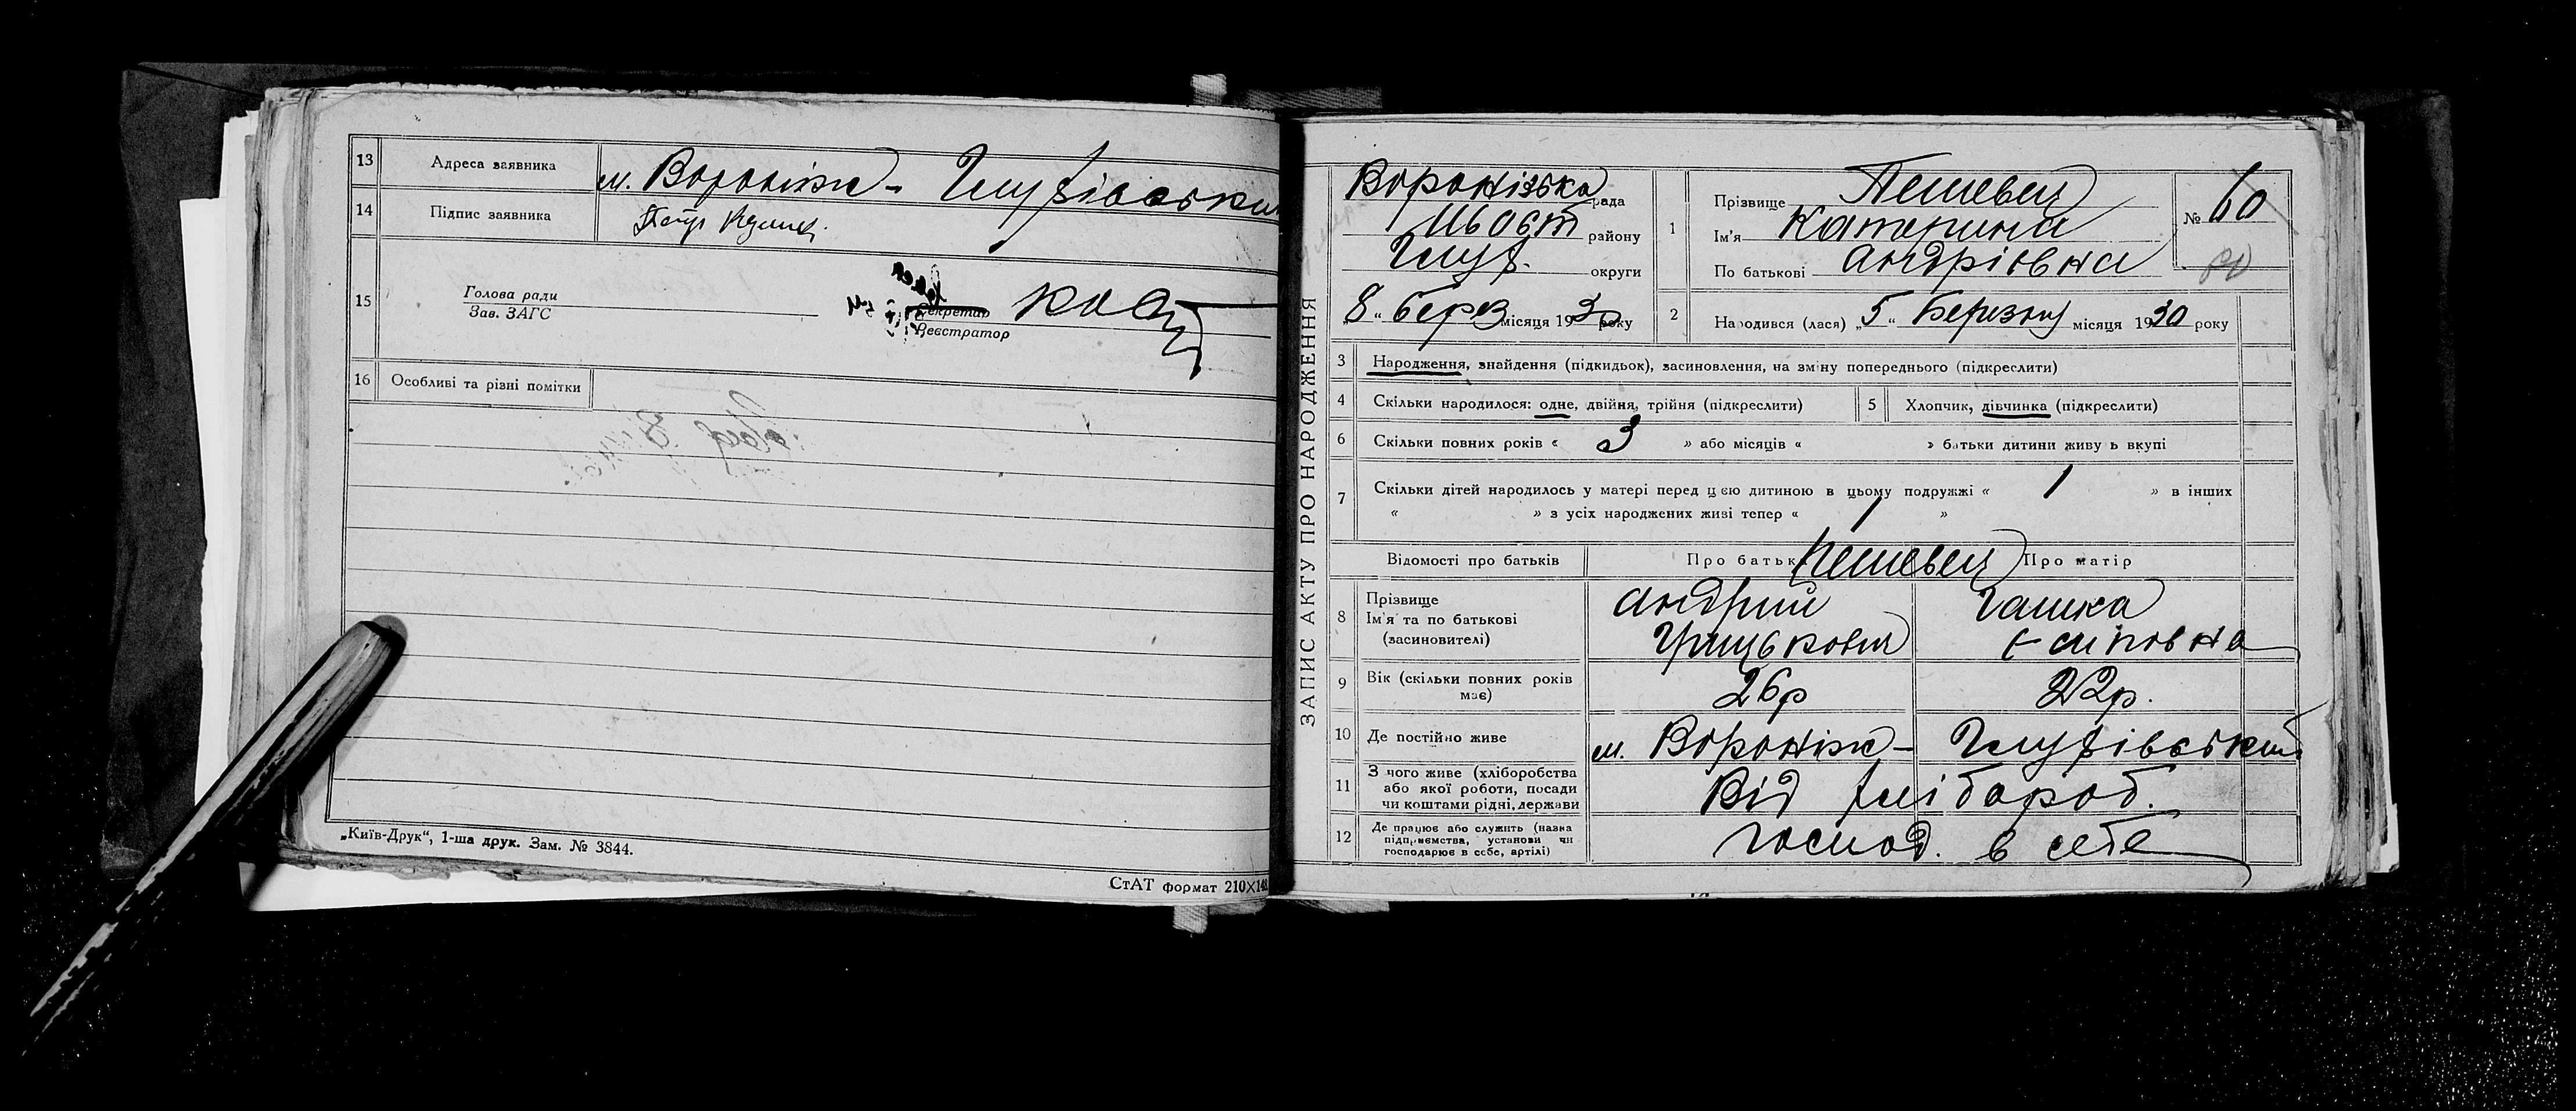 13 Адреса заявника м. Вороніж - Глухівськи
14 Підпис заявника
15 Голова ради
Зав. ЗАГС
Секретар
Реєстратор
16 Особливі та різні помітки
„Київ-Друк“, 1-ша друк. Зам. № 3844.
СтАТ формат 210×148
ЗАПИС АКТУ ПРО НАРОДЖЕННЯ
Воронізька рада
району
Глух. округи
„8“ берез місяця 1930 року
1 Прізвище Пешевец
Ім'я Катерина
По батькові Андріовна
№ 60
2 Народився (лася) „5“ Березня місяця 1930 року
3 Народження, знайдення (підкидьок), засиновлення, на зміну попереднього (підкреслити)
4 Скільки народилося: одне, двійня, трійня (підкреслити) 5 Хлопчик, дівчинка (підкреслити)
6 Скільки повних років « 3 » або місяців « » батьки дитини живуть вкупі
7 Скільки дітей народилось у матері перед цєю дитиною в цьому подружжі « 1 » в інших
« » з усіх народжених живі тепер « 1 »
Відомості про батьків Про батька Пешевец Про матір
8 Прізвище Андрий Гашка
Ім'я та по батькові
(засиновителі) Грицькович Єсиповна
9 Вік (скільки повних років має) 26р 22р.
10 Де постійно живе м. Вороніж - Глухівський
11 З чого живе (хліборобства
або якої роботи, посади Від хлібороб.
чи коштами рідні, держави
12 Де працює або служить (назва
підприємства, установи чи господ. в себе
господарює в себе, артілі)